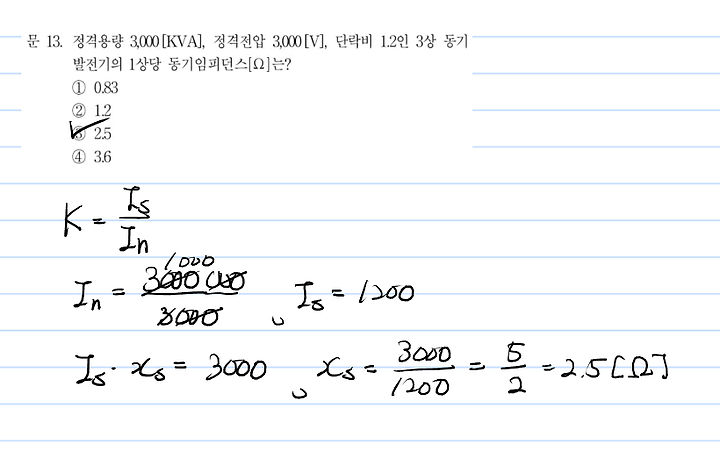 문 13. 정격용량 3,000[KVA], 정격전압 3,000[V], 단락비 1.2인 3상 동기
발전기의 1상당 동기임피던스[Ω]는?
① 0.83
② 1.2
③ 2.5
④ 3.6
K = Is/In
1000
In = 3000000/3000 , Is = 1200
Is · xs = 3000 , xs = 3000/1200 = 5/2 = 2.5 [Ω]